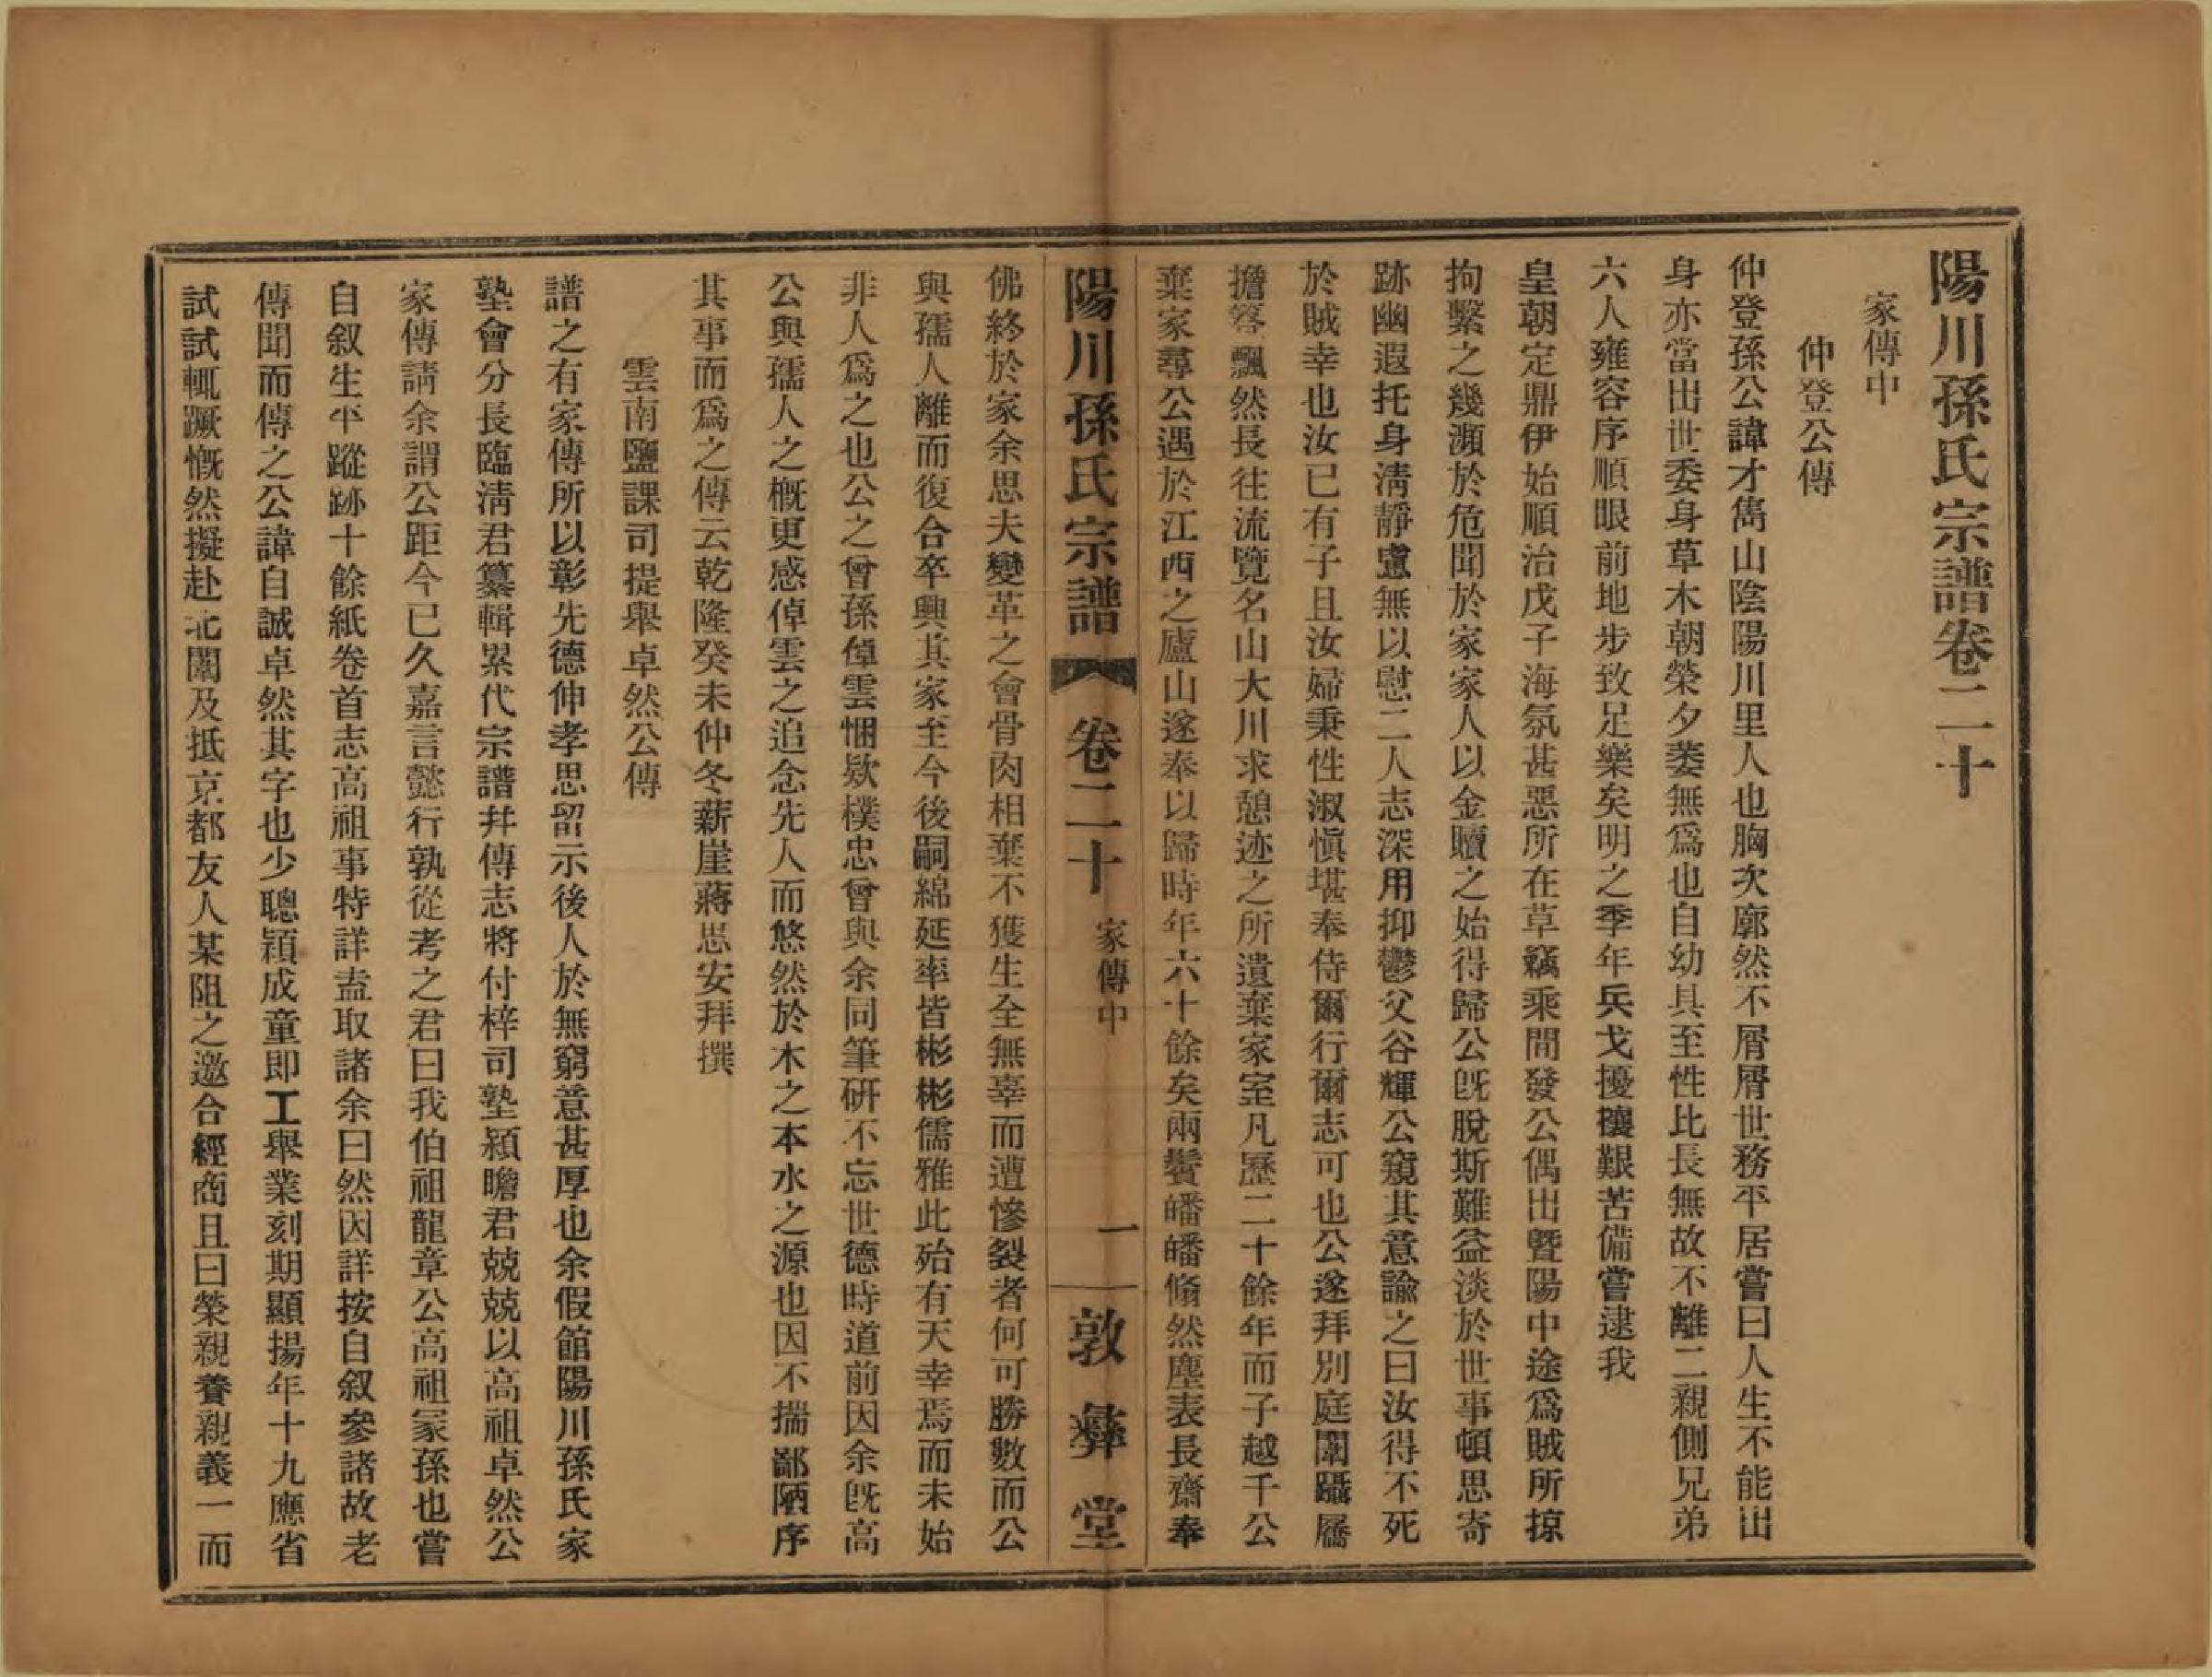 陽川孫氏宗譜卷二十
家傳中
仲登公傳
仲登孫公諱才雋山陰陽川里人也胸次廓然不屑屑世務平居嘗曰人生不能出
身亦當出世委身草木朝榮夕萎無爲也自幼具至性比長無故不離二親側兄弟
六人雍容序順眼前地步致足樂矣明之季年兵戈擾攘艱苦備嘗逮我
皇朝定鼎伊始順治戊子海氛甚惡所在草竊乘間發公偶出曁陽中途爲賊所掠
拘繫之幾瀕於危聞於家家人以金贖之始得歸公旣脫斯難益淡於世事頓思寄
跡幽遐托身淸靜慮無以慰二人志深用抑鬱父谷輝公窺其意諭之曰汝得不死
於賊幸也汝已有子且汝婦秉性淑愼堪奉侍爾行爾志可也公遂拜別庭闈躡屩
擔簦飄然長往流覽名山大川求憩迹之所遺棄家室凡歷二十餘年而子越千公
棄家尋公遇於江西之廬山遂奉以歸時年六十餘矣兩鬢皤皤翛然塵表長齋奉
陽川孫氏宗譜 卷二十 家傳中 一 敦彝堂
佛終於家余思夫變革之會骨肉相棄不獲生全無辜而遭慘裂者何可勝數而公
與孺人離而復合卒興其家至今後嗣綿延率皆彬彬儒雅此殆有天幸焉而未始
非人爲之也公之曾孫倬雲悃欵樸忠曾與余同筆硏不忘世德時道前因余旣高
公與孺人之槪更感倬雲之追念先人而悠然於木之本水之源也因不揣鄙陋序
其事而爲之傳云乾隆癸未仲冬薪崖蔣思安拜撰
雲南鹽課司提舉卓然公傳
譜之有家傳所以彰先德伸孝思留示後人於無窮意甚厚也余假館陽川孫氏家
塾會分長臨淸君纂輯累代宗譜幷傳志將付梓司塾潁瞻君兢兢以高祖卓然公
家傳請余謂公距今已久嘉言懿行孰從考之君曰我伯祖龍章公高祖冢孫也嘗
自叙生平蹤跡十餘紙卷首志高祖事特詳盍取諸余曰然因詳按自叙參諸故老
傳聞而傳之公諱自誠卓然其字也少聰穎成童即工舉業刻期顯揚年十九應省
試試輒蹶慨然擬赴北闈及抵京都友人某阻之邀合經商且曰榮親養親義一而